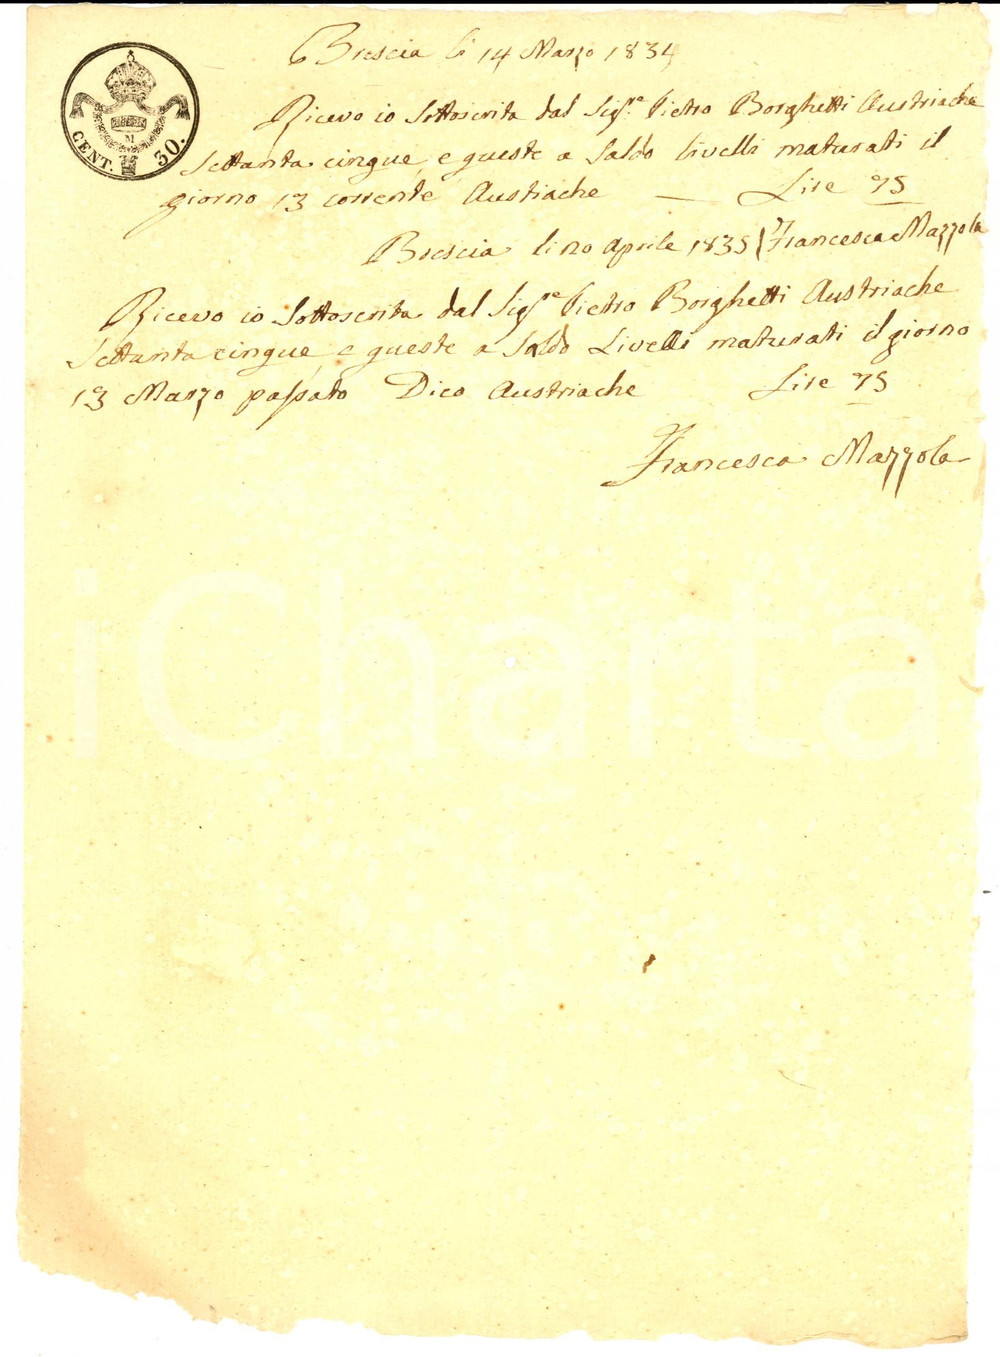 Brescia li 14 Marzo 1834
CENT. 30.
Ricevo io Sottoscrita dal Sigr. Pietro Borghetti Austriache
Settanta cinque, e queste a Saldo livelli maturati il
giorno 13 corrente Austiache — Lire 75
Brescia li 20 Aprile 1835 Francesca Mazzola
Ricevo io Sottoscrita dal Sigre Pietro Borghetti Austriache
Settanta cinque, e queste a Saldo Livelli maturati il giorno
13 Marzo passato Dico Austriache Lire 75
Francesca Mazzola
iCharta